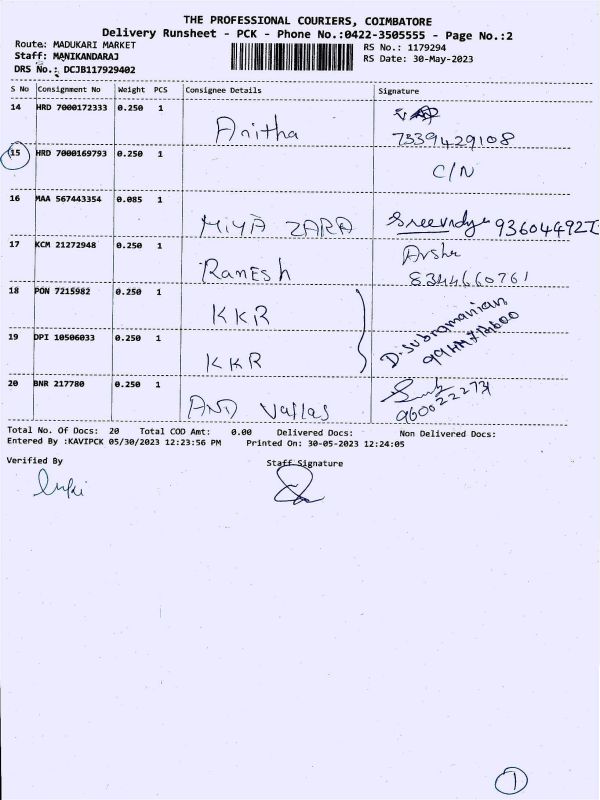 THE PROFESSIONAL COURIERS, COIMBATORE
Delivery Runsheet - PCK - Phone No.:0422-3505555 - Page No.:2
Route: MADUKARI MARKET
Staff: MANIKANDARAJ
DRS No.: DCJB117929402
RS No.: 1179294
RS Date: 30-May-2023
S No Consignment No Weight PCS Consignee Details Signature
14 HRD 7000172333 0.250 1 Anitha
7339429108
15 HRD 7000169793 0.250 1 C/N
16 MAA 567443354 0.085 1 MIYA ZARA
17 KCM 21272948 0.250 1 Ramesh
8344660761
18 PON 7215982 0.250 1 KKR
D. Subramanian
19 DPI 10506033 0.250 1 KKR
20 BNR 217780 0.250 1 AND
Total No. Of Docs: 20 Total COD Amt: 0.00 Delivered Docs: Non Delivered Docs:
Entered By :KAVIPCK 05/30/2023 12:23:56 PM Printed On: 30-05-2023 12:24:05
Verified By Staff Signature
1